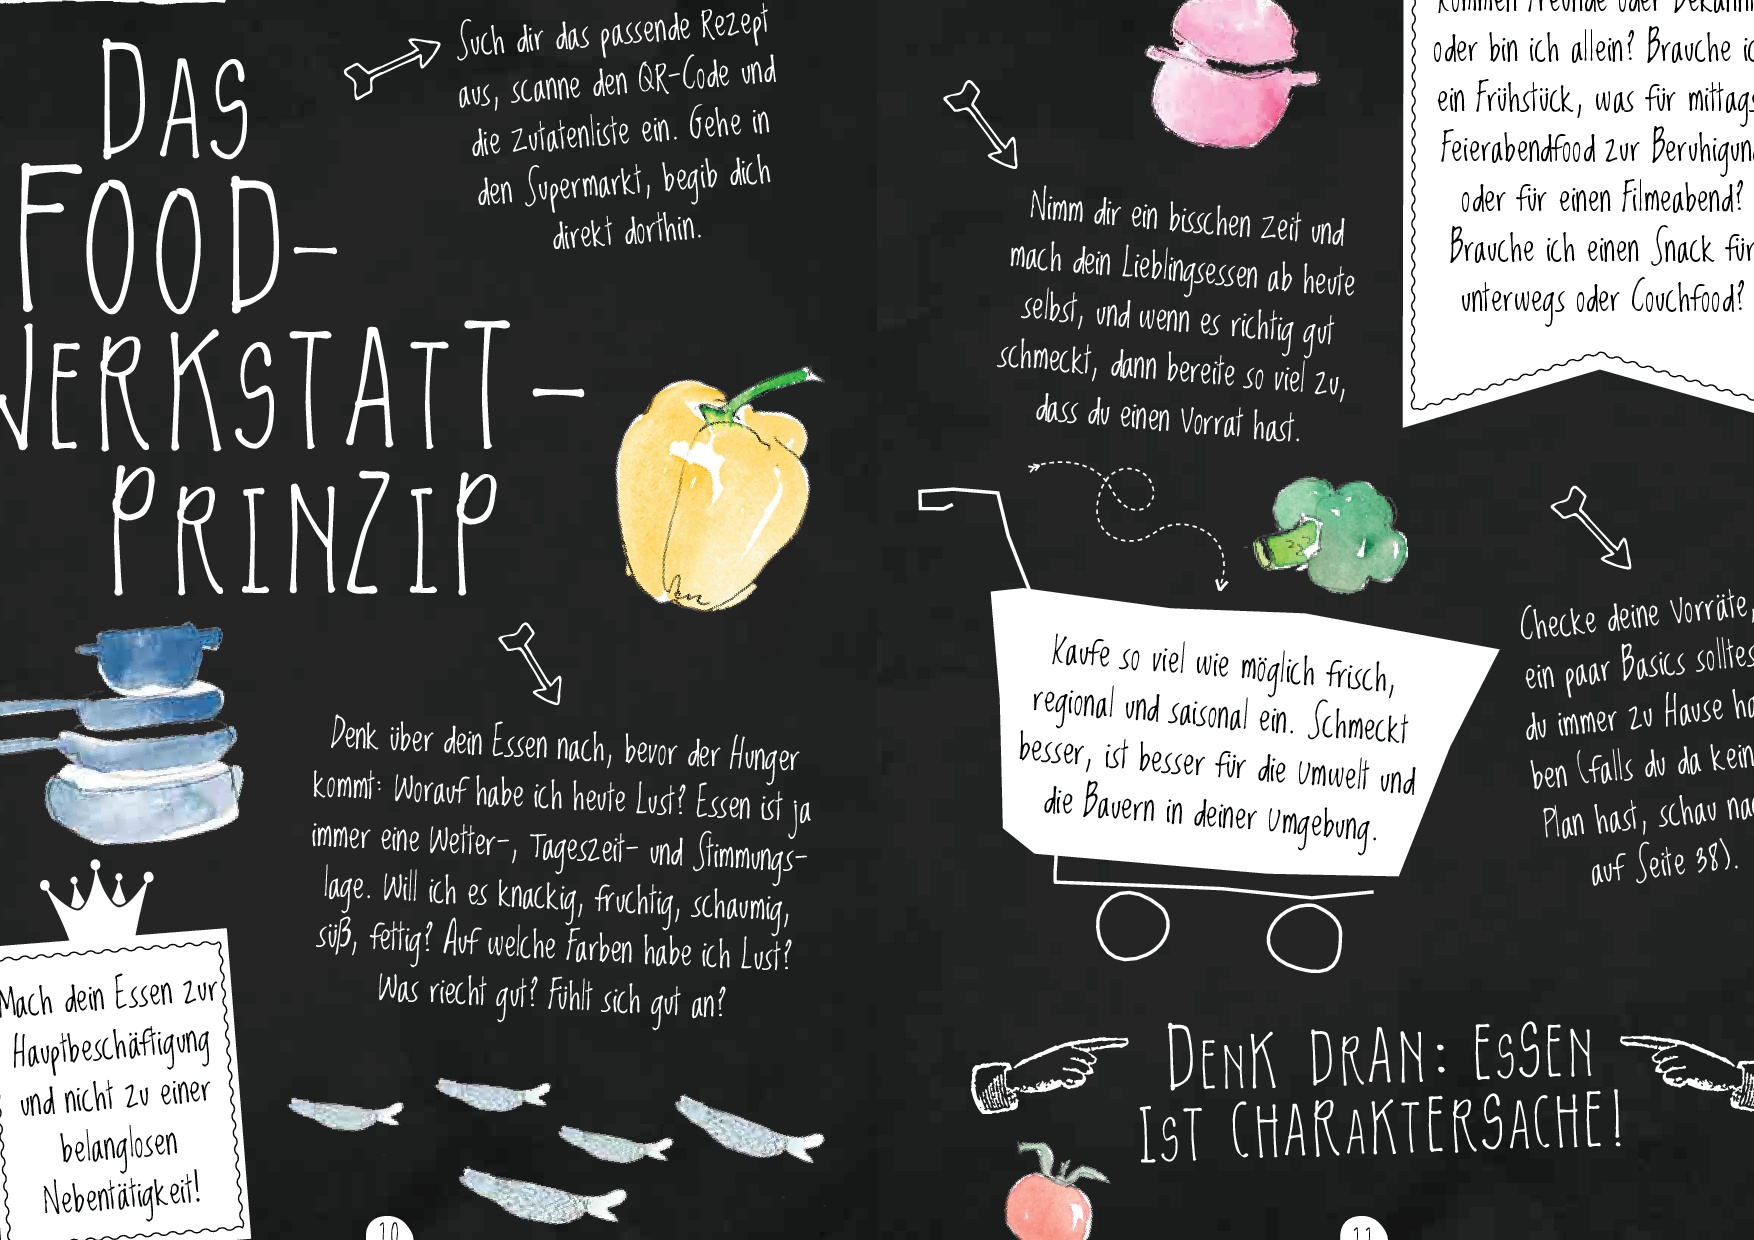 DAS
FOOD-
WERKSTATT-
PRINZIP
Such dir das passende Rezept
aus, scanne den QR-Code und
die Zutatenliste ein. Gehe in
den Supermarkt, begib dich
direkt dorthin.
Denk über dein Essen nach, bevor der Hunger
kommt: Worauf habe ich heute Lust? Essen ist ja
immer eine Wetter-, Tageszeit- und Stimmungs-
lage. Will ich es knackig, fruchtig, schaumig,
süß, fettig? Auf welche Farben habe ich Lust?
Was riecht gut? Fühlt sich gut an?
Mach dein Essen zur
Hauptbeschäftigung
und nicht zu einer
belanglosen
Nebentätigkeit!
10
Nimm dir ein bisschen Zeit und
mach dein Lieblingsessen ab heute
selbst, und wenn es richtig gut
schmeckt, dann bereite so viel zu,
dass du einen Vorrat hast.
kommen Freunde oder
oder bin ich allein? Brauche
ein Frühstück, was für mittags
Feierabendfood zur
oder für einen Filmeabend?
Brauche ich einen Snack für
unterwegs oder Couchfood?
Kaufe so viel wie möglich frisch,
regional und saisonal ein. Schmeckt
besser, ist besser für die Umwelt und
die Bauern in deiner Umgebung.
Checke deine Vorräte,
ein paar Basics
du immer zu Hause
ben (falls du da
Plan hast, schau
auf Seite 38).
DENK DRAN: ESSEN
IST CHARAKTERSACHE!
11